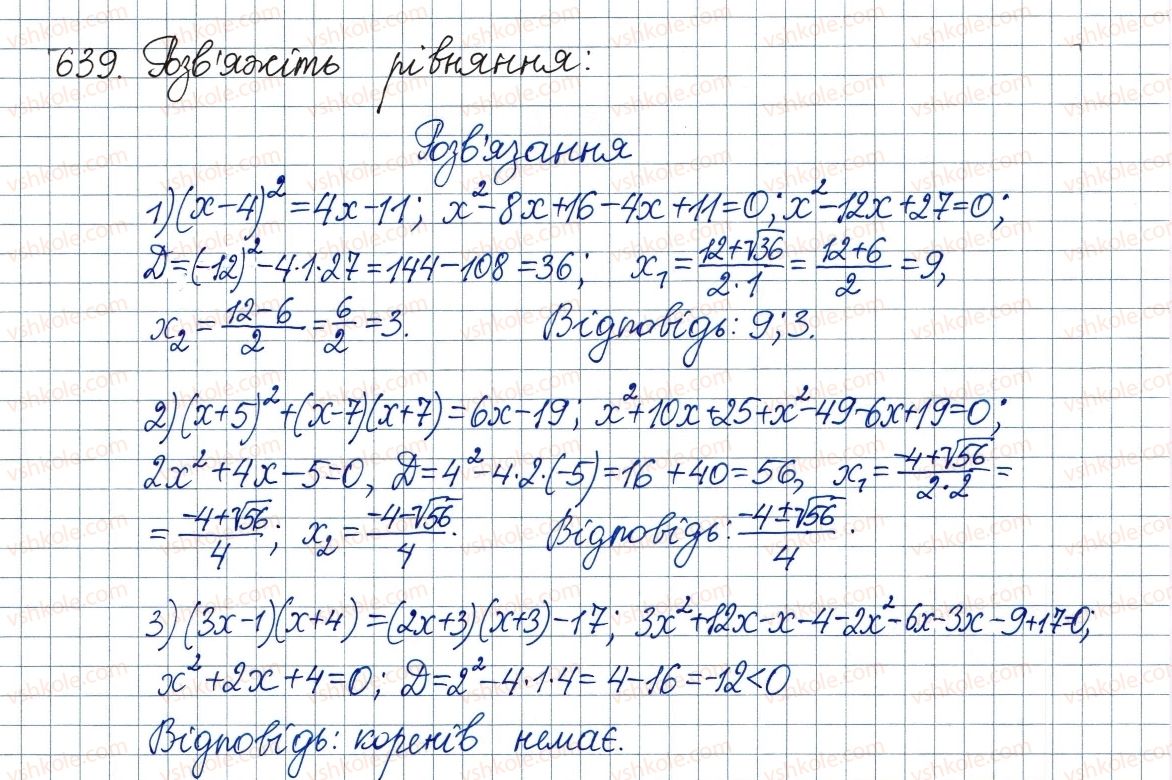 639. Розв'яжіть рівняння:
Розв'язання
1) (x-4)² = 4x-11; x²-8x+16-4x+11=0; x²-12x+27=0;
D=(-12)²-4·1·27=144-108=36; x₁ = (12+√36)/(2·1) = (12+6)/2 = 9,
x₂ = (12-6)/2 = 6/2 = 3. Відповідь: 9; 3.
2) (x+5)²+(x-7)(x+7)=6x-19; x²+10x+25+x²-49-6x+19=0;
2x²+4x-5=0, D=4²-4·2·(-5)=16+40=56, x₁ = (-4+√56)/(2·2) =
= (-4+√56)/4; x₂ = (-4-√56)/4. Відповідь: (-4±√56)/4.
3) (3x-1)(x+4)=(2x+3)(x+3)-17; 3x²+12x-x-4-2x²-6x-3x-9+17=0;
x²+2x+4=0; D=2²-4·1·4=4-16=-12<0
Відповідь: коренів немає.